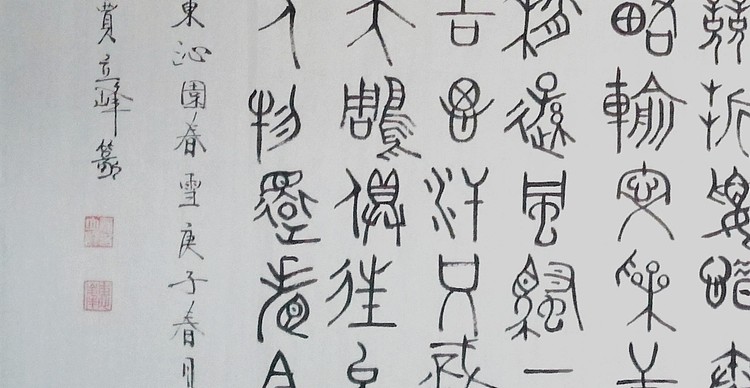 競折腰惜
略輸文采
稍遜風騷一
吉思汗只識
大鵰俱往矣
人物還看今
東沁園春雪庚子春月
費立峰篆